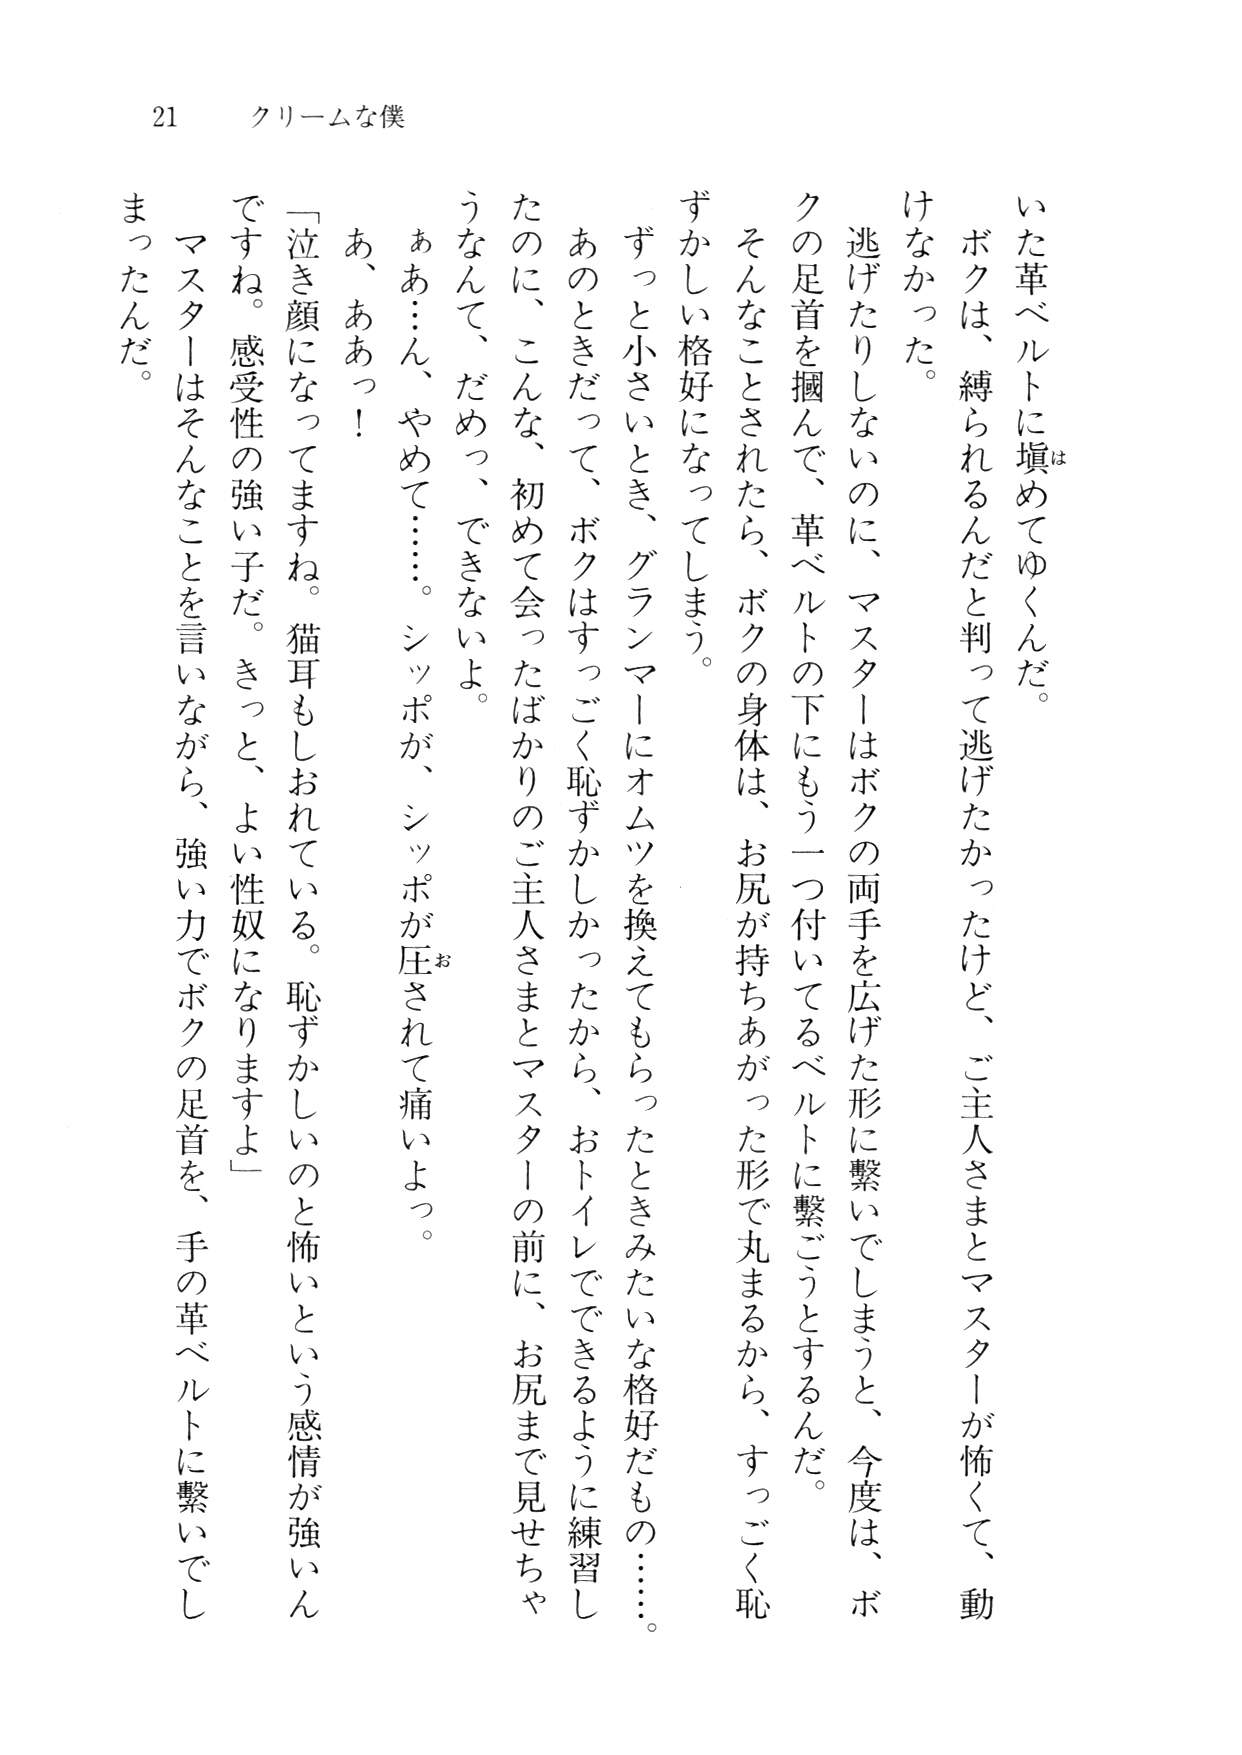 21 クリームな僕
いた革ベルトに塡めてゆくんだ。
ボクは、縛られるんだと判って逃げたかったけど、ご主人さまとマスターが怖くて、動
けなかった。
逃げたりしないのに、マスターはボクの両手を広げた形に繫いでしまうと、今度は、ボ
クの足首を摑んで、革ベルトの下にもう一つ付いてるベルトに繫ごうとするんだ。
そんなことされたら、ボクの身体は、お尻が持ちあがった形で丸まるから、すっごく恥
ずかしい格好になってしまう。
ずっと小さいとき、グランマーにオムツを換えてもらったときみたいな格好だもの……。
あのときだって、ボクはすっごく恥ずかしかったから、おトイレでできるように練習し
たのに、こんな、初めて会ったばかりのご主人さまとマスターの前に、お尻まで見せちゃ
うなんて、だめっ、できないよ。
ぁあ…ん、やめて……。シッポが、シッポが圧されて痛いよっ。
あ、ああっ！
「泣き顔になってますね。猫耳もしおれている。恥ずかしいのと怖いという感情が強いん
ですね。感受性の強い子だ。きっと、よい性奴になりますよ」
マスターはそんなことを言いながら、強い力でボクの足首を、手の革ベルトに繫いでし
まったんだ。